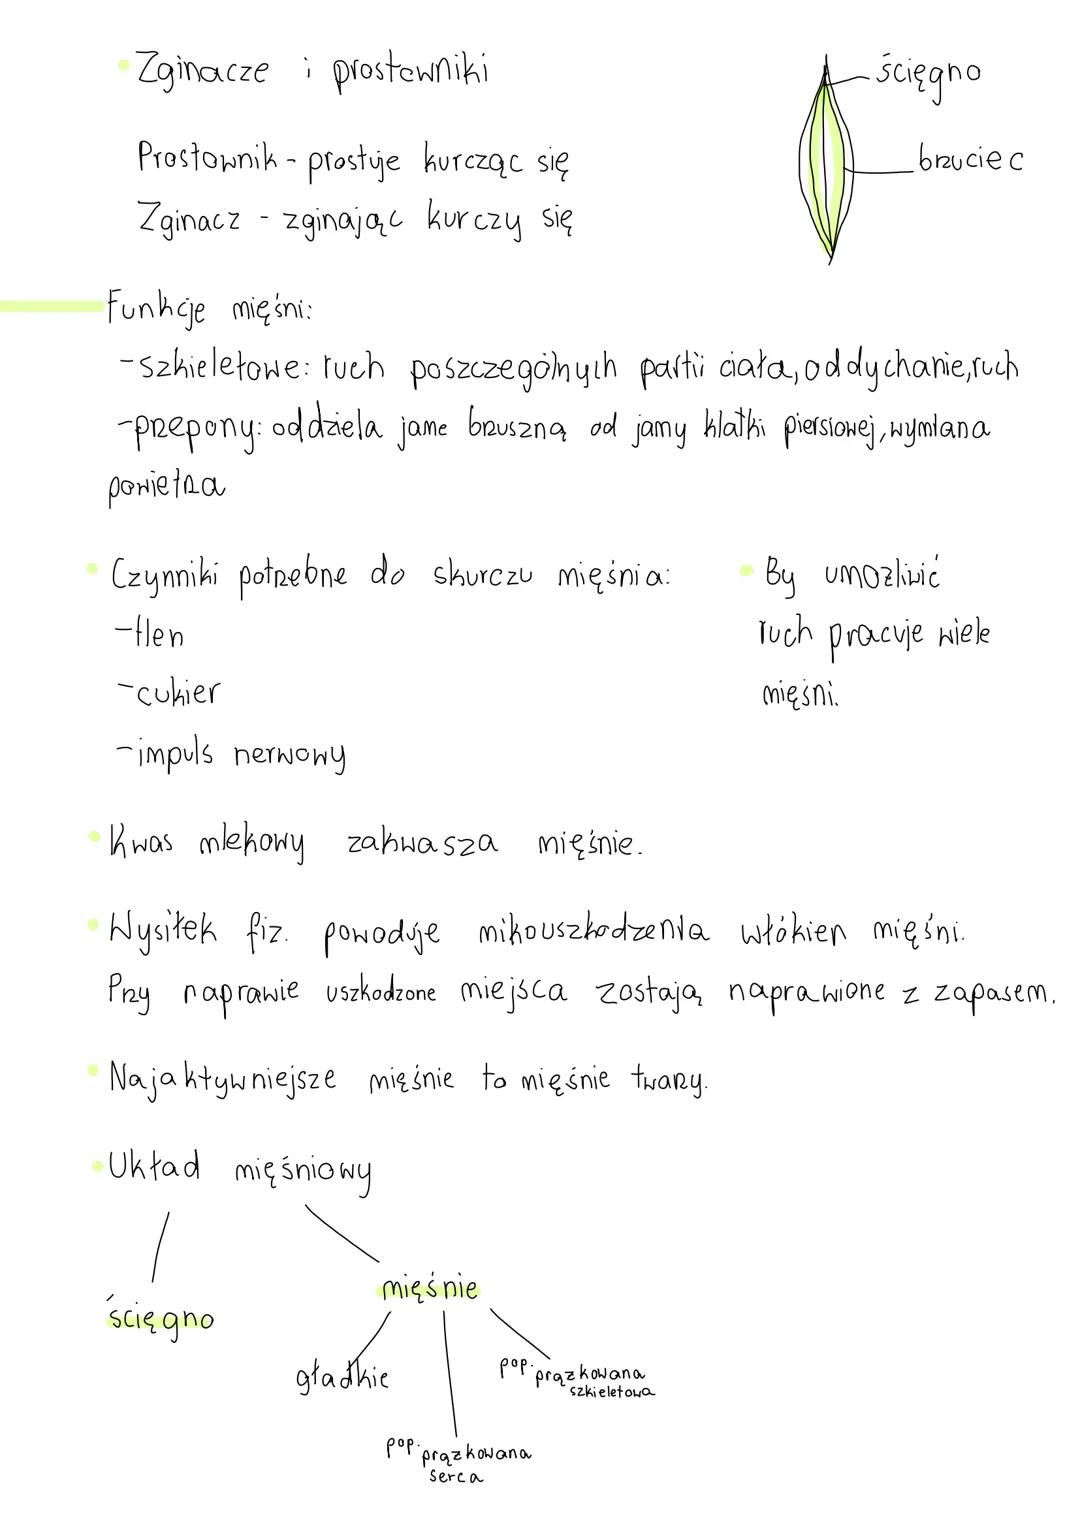 Zginacze i prostowniki
ścięgno
brzuciec
Prostownik - prostuje kurcząc się
Zginacz - zginając kurczy się
Funkcje mięśni:
-szkieletowe: ruch poszczególnych partii ciała, oddychanie, ruch
-przepony: oddziela jame brzuszną od jamy klatki piersiowej, wymiana
powietrza
Czynniki potrzebne do skurczu mięśnia:
-tlen
-cukier
-impuls nerwowy
By umozliwić
ruch pracuje wiele
mięśni.
Kwas mlekowy zakwasza mięśnie.
Wysiłek fiz. powoduje mikouszkodzenia włókien mięśni.
Przy naprawie uszkodzone miejsca zostają naprawione z zapasem.
Najaktywniejsze mięśnie to mięśnie twarzy.
Układ mięśniowy
ścięgno
mięśnie
gładkie
pop. prązkowana
szkieletowa
pop. prązkowana
serca